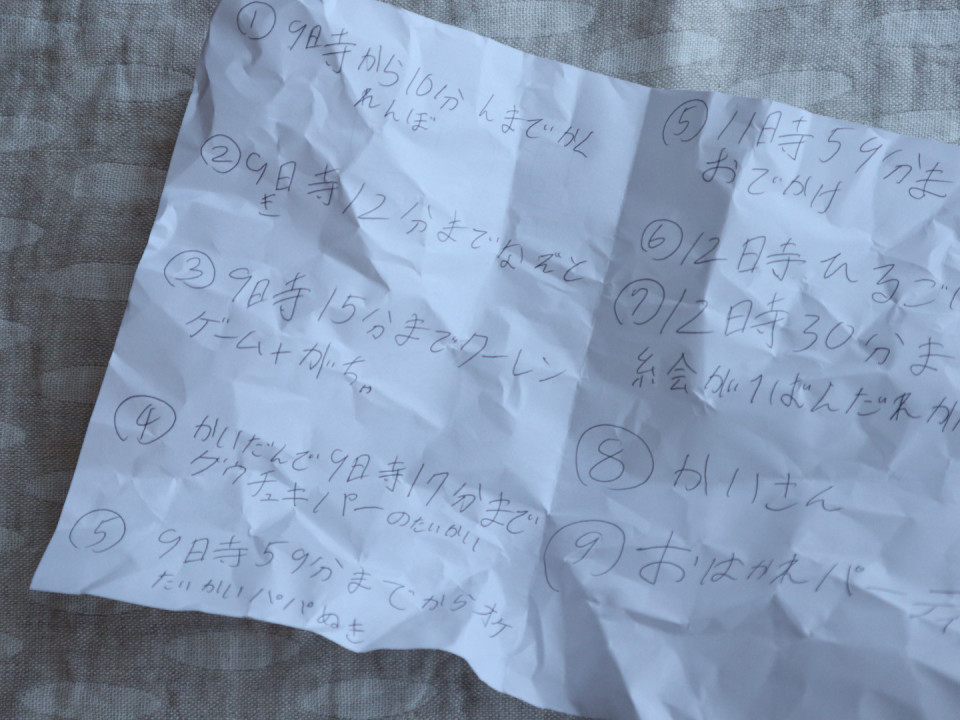 ① 9時から10分んまでかく
れんぼ
② 9時12分までなぞと
き
③ 9時15分までクーレン
ゲーム+がちゃ
④ かいだんで9時17分まで
グウチュキパーのたいかい
⑤ 9時59分までからオケ
だいかいパパぬき
⑤ 11時59分ま
おでかけ
⑥ 12時ひるご
⑦ 12時30分ま
絵がいばんだれか
⑧ かいさん
⑨ おはかれパーティ